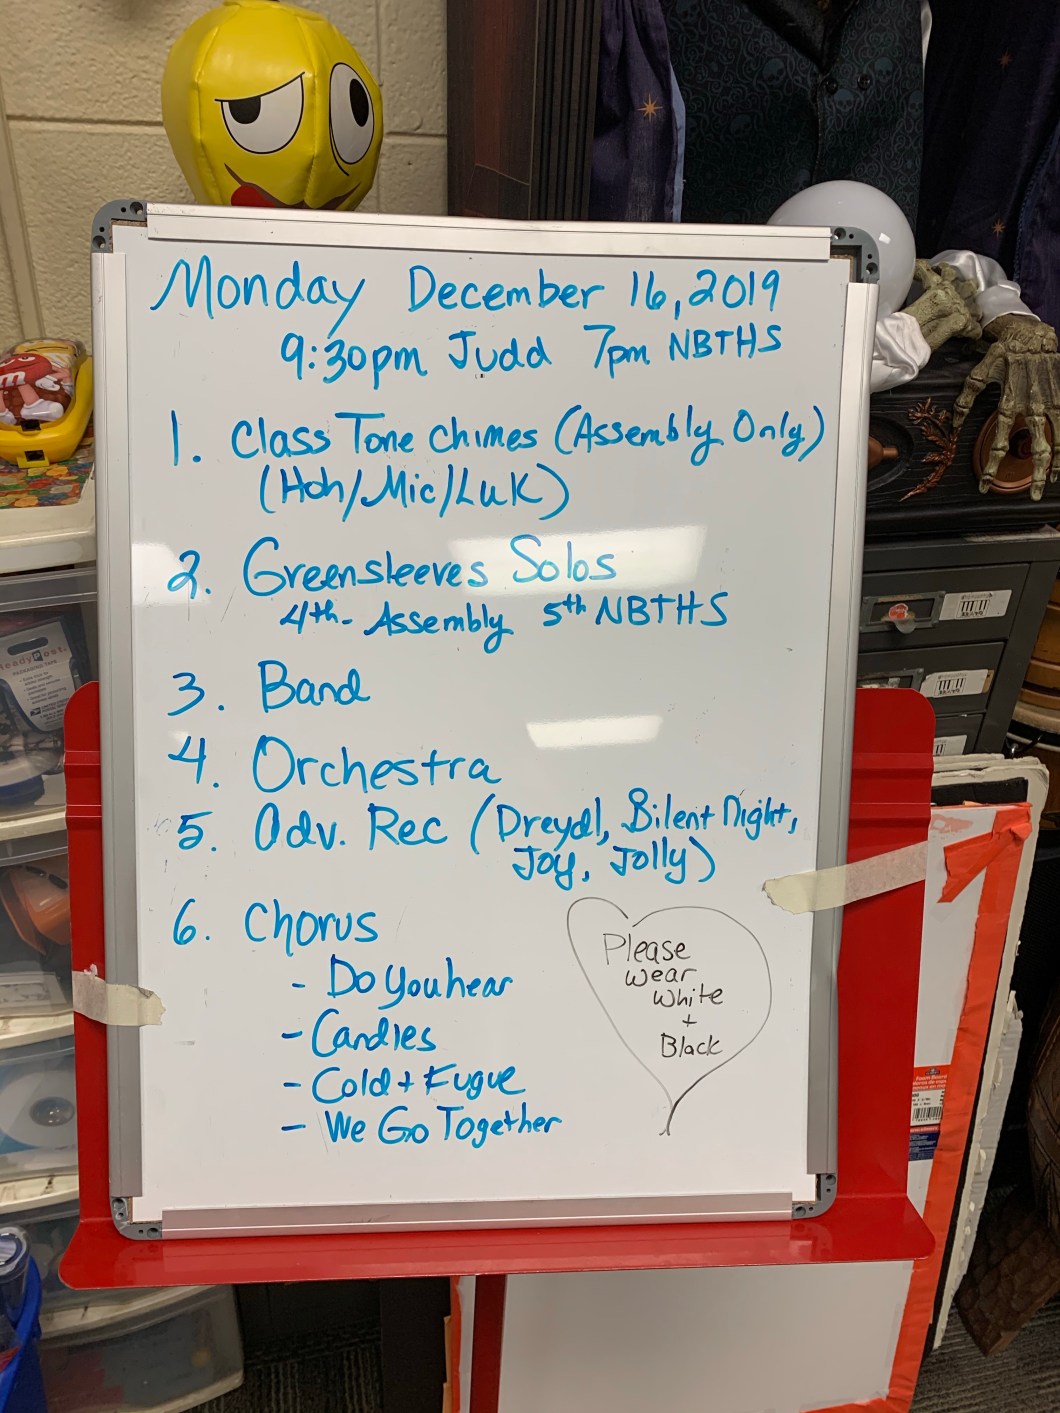 Monday December 16, 2019
9:30pm Judd 7pm NBTHS
1. Class Tone Chimes (Assembly Only)
(Hoh/Mic/Luk)
2. Greensleeves Solos
4th - Assembly 5th NBTHS
3. Band
4. Orchestra
5. Adv. Rec (Dreydl, Silent Night,
Joy, Jolly)
6. Chorus
- Do You hear
- Candles
- Cold + Fugue
- We Go Together
Please
wear
white
+
Black